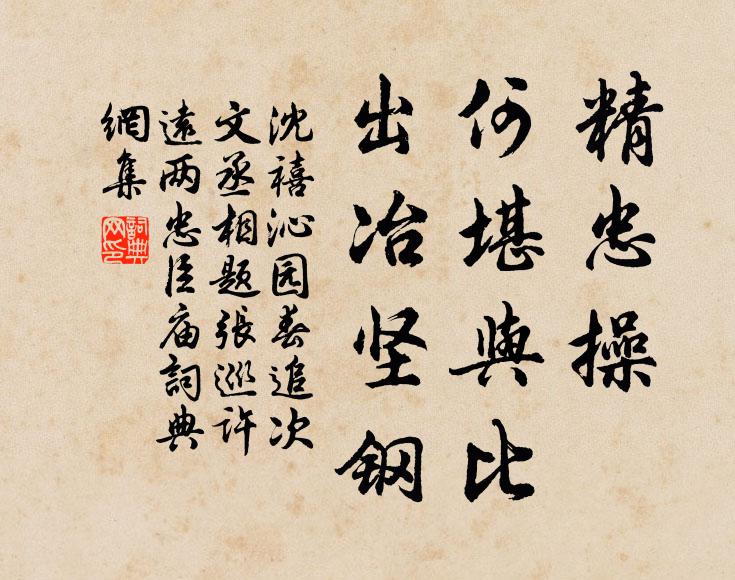 精忠操
何堪與比
出冶坚钢
沈禧沁园春追次
文丞相题張巡许
遠两忠臣庙詞典
網集
詞典
网印